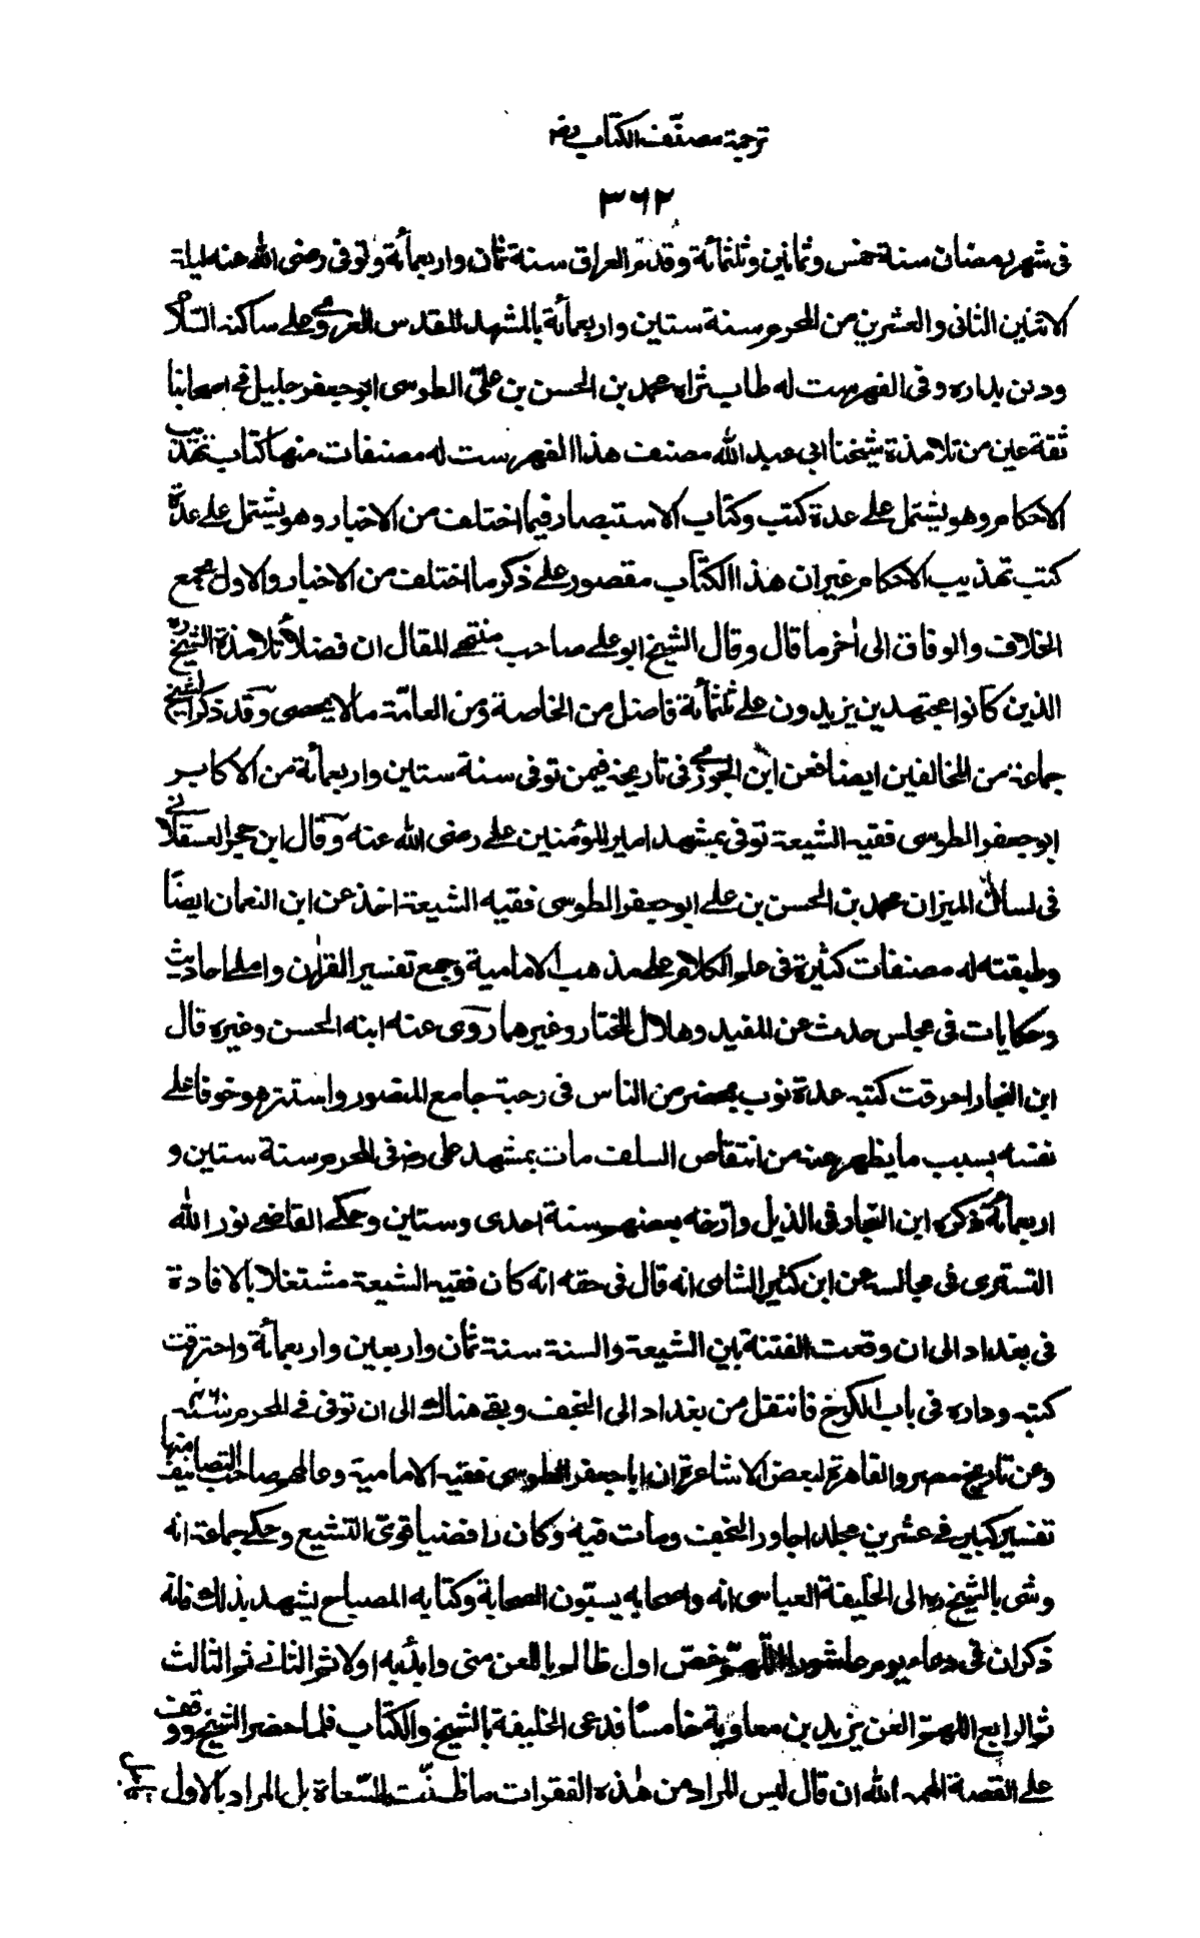 ترجمة مصنّف الكتاب رض
٣٦٢
فى شهر رمضان سنة خمس وثمانين وثلثمائة وقدم العراق سنة ثمان واربعمائة وتوفى رضى الله عنه ليلة
الاثنين الثانى والعشرين من المحرم سنة ستين واربعمائة بالمشهد المقدس الغروى على ساكنه السلام
ودفن بداره وفى الفهرست له طاب ثراه محمد بن الحسن بن علىّ الطوسى ابو جعفر جليل فى اصحابنا
ثقة عين من تلامذة شيخنا ابى عبد الله مصنف هذا الفهرست له مصنفات منها كتاب تهذيب
الاحكام وهو يشتمل على عدة كتب وكتاب الاستبصار فيما اختلف من الاخبار وهو يشتمل على عدّة
كتب تهذيب الاحكام غير ان هذا الكتاب مقصور على ذكر ما اختلف من الاخبار والاول يجمع
الخلاف والوفاق الى اٰخر ما قال وقال الشيخ ابو على صاحب منتهى المقال ان فضلاء تلامذة الشيخ ره
الذين كانوا مجتهدين يزيدون على ثلثمائة فاضل من الخاصة ومن العامّة ما لا يحصى وقد ذكر الشيخ
جماعة من المخالفين ايضا فعن ابن الجوزى فى تاريخه فيمن توفى سنة ستين واربعمائة من الاكابر
ابو جعفر الطوسى فقيه الشيعة توفى بمشهد امير المؤمنين على رضى الله عنه وقال ابن حجر العسقلانى
فى لسان الميزان محمد بن الحسن بن على ابو جعفر الطوسى فقيه الشيعة اخذ عن ابن النعمان ايضًا
وطبقته له مصنفات كثيرة فى علم الكلام على مذهب الامامية وجمع تفسير القراٰن واملى احاديث
وحكايات فى مجلس حدث عن المفيد وهلال الحفار وغيرهما روى عنه ابنه الحسن وغيره قال
ابن النجار احرقت كتبه عدة نوب بمحضر من الناس فى رحبة جامع المنصور واستتر هو خوفا على
نفسه بسبب ما يظهر عنه من انتقاص السلف مات بمشهد على رض فى المحرم سنة ستين و
اربعمائة ذكره ابن النجار فى الذيل وارّخه بعضهم سنة احدى وستين وحكى القاضى نور الله
التسترى فى مجالسه عن ابن كثير الشامى انه قال فى حقه انه كان فقيه الشيعة مشتغلا بالافادة
فى بغداد الى ان وقعت الفتنة بين الشيعة والسنة سنة ثمان واربعين واربعمائة واحترقت
كتبه وداره فى باب الكرخ فانتقل من بغداد الى النجف وبقى هناك الى ان توفى فى المحرم سنة
وعن تاريخ مصر والقاهرة لبعض الاشاعرة ان ابا جعفر الطوسى فقيه الامامية وعالمهم صاحب التصانيف منها
تفسير كبير فى عشرين مجلدا جاور النجف ومات فيه وكان رافضيا قوىّ التشيع وحكى جماعة انه
وشى بالشيخ ره الى الخليفة العباسى انه واصحابه يسبّون الصحابة وكتابه المصباح يشهد بذلك فانه
ذكر ان فى دعاء يوم عاشوراء اللهمّ خصّ اول ظالم باللعن منى وابدء به اولا ثم الثانى ثم الثالث
ثم الرابع اللهمّ العن يزيد بن معاوية خامسًا فدعى الخليفة بالشيخ والكتاب فلما حضر الشيخ ووقف
على القصة الهمه الله ان قال ليس المراد من هٰذه الفقرات ما ظنّت السّعاة بل المراد بالاول